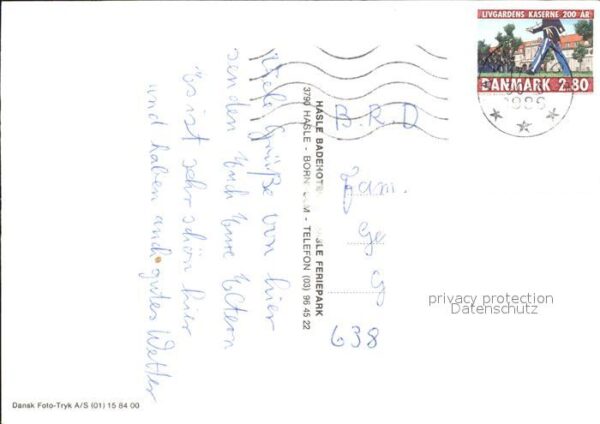 LIVGARDENS KASERNE 200 ÅR
DANMARK 2.80
1986
Viele Grüße von hier
senden Euch Eure Eltern
Es ist sehr schön hier
und haben auch gutes Wetter
HASLE BADEHOT
SLE FERIEPARK
3790 HASLE - BORN M - TELEFON (03) 96 45 22
B.R.D
Fam.
638
privacy protection
Datenschutz
Dansk Foto-Tryk A/S (01) 15 84 00